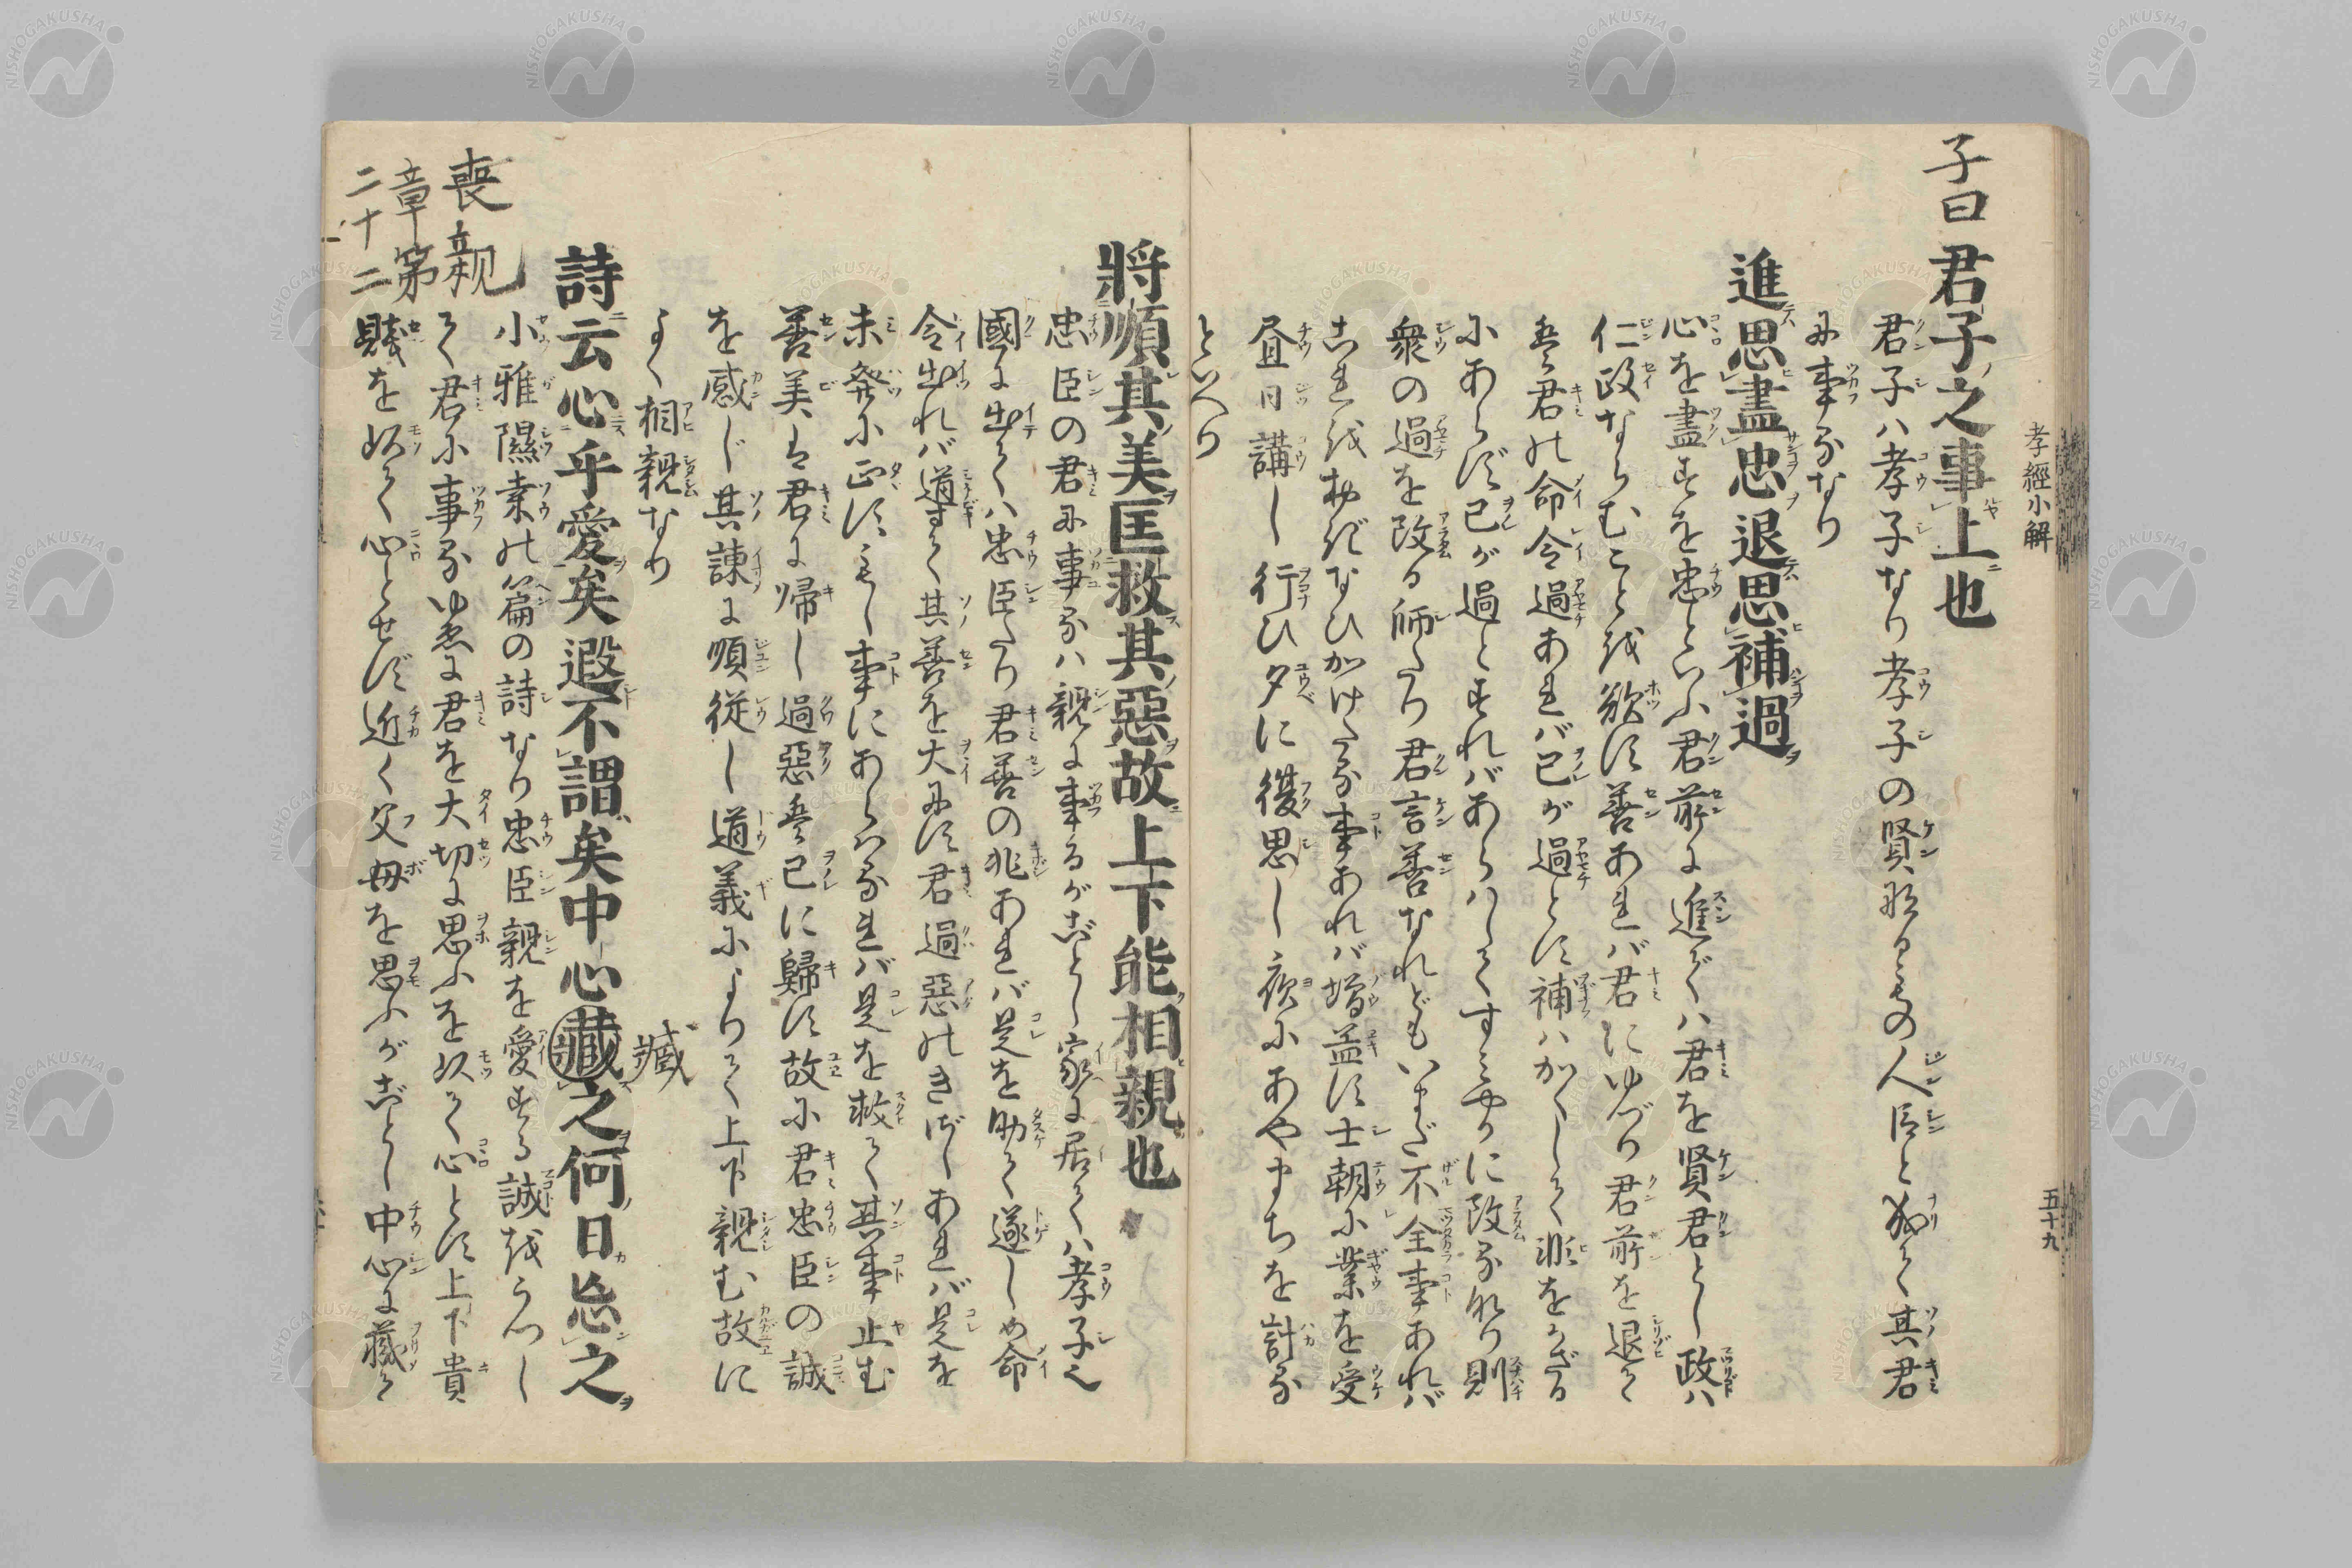 孝經小解
五十九
子曰君子之事上也
君子ハ孝子なり孝子の賢なる者の人臣と成て其君
に事るなり
進思盡忠退思補過
心を盡すを忠といふ君前に進てハ君を賢君とし政ハ
仁政ならむことを欲す善あれバ君にゆづり君前を退て
吾君の命令過あれバ已が過とす補ハかくして非をかざる
にあらず已が過とすれバあらハしてすミやかに改るなり則
衆の過を改る師たり君言善なれどもいまだ不全事あれバ
これをおぎなひかけたる事あれバ増益す士朝に業を受
昼日講し行ひ夕に復思し夜にあやまちを計る
といへり
將順其美匡救其惡故上下能相親也
忠臣の君に事るハ親に事るがごとし家に居てハ孝子之
國に出てハ忠臣たり君善の兆あれバ是を助て遂しめ命
令出れバ道すて其善を大にす君過惡のきざしあれバ是を
未発に正すもし事にあらハるれバ是を救て其事止む
善美は君に帰し過惡吾已に歸す故に君忠臣の誠
を感じ其諫に順從し道義によりて上下親む故に
よく相親なり
詩云心乎愛矣遐不謂矣中心藏之何日忘之
臓
小雅隰桑の篇の詩なり忠臣親を愛する誠をうつし
て君に事るゆゑに君を大切に思ふを以て心とす上下貴
賤を以て心とせず近く父母を思ふがごとし中心に藏て
喪親
章第
二十二